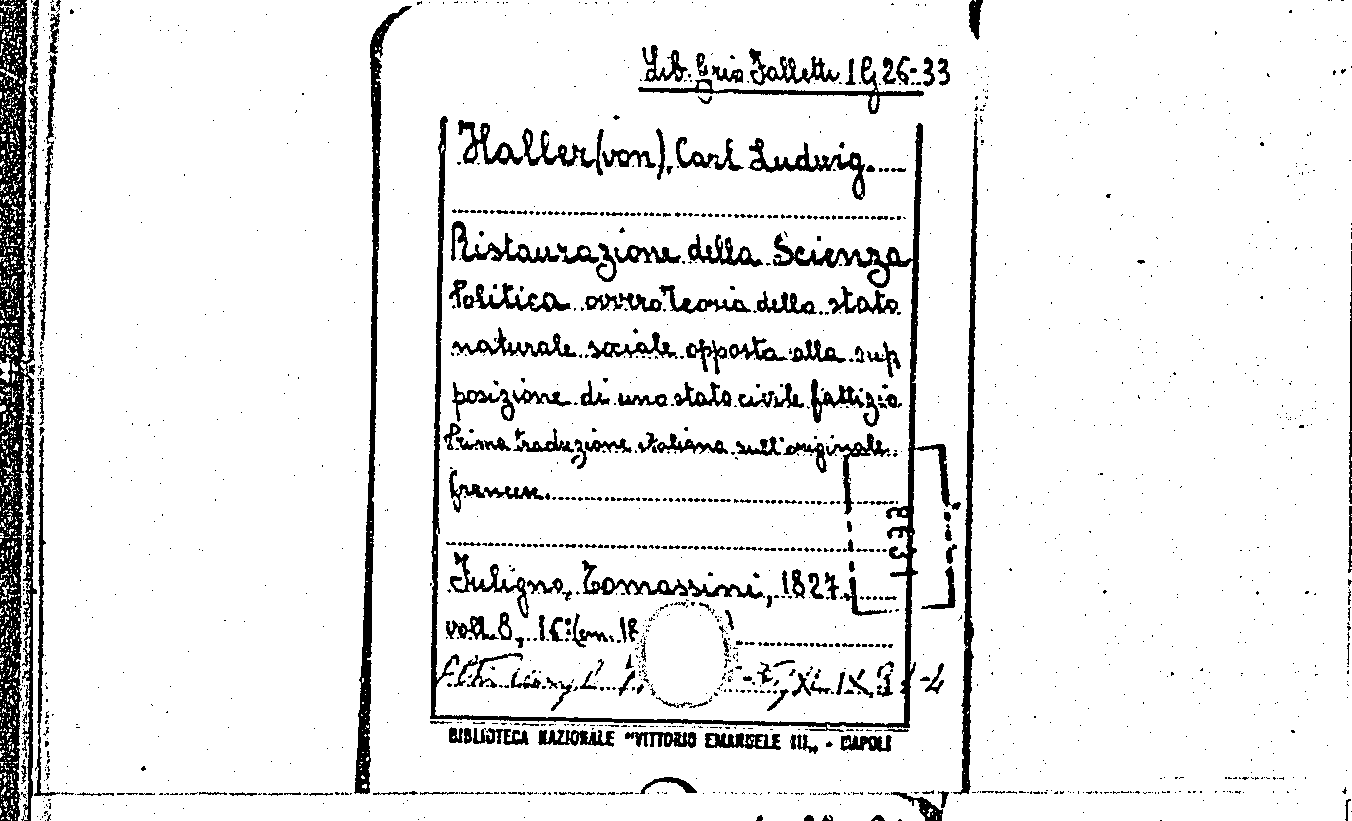 Lib. Gria Falletti 1 G 26-33
Haller (von), Carl Ludwig.
Ristaurazione della Scienza
Politica ovvero Teoria dello stato
naturale sociale opposta alla sup
posizione di uno stato civile fattizio
Prima traduzione italiana sull'originale
francese.
Fuligno, Tomassini, 1827.
voll. 8, 16° (cm. 18
BIBLIOTECA NAZIONALE "VITTORIO EMANUELE III„ - NAPOLI